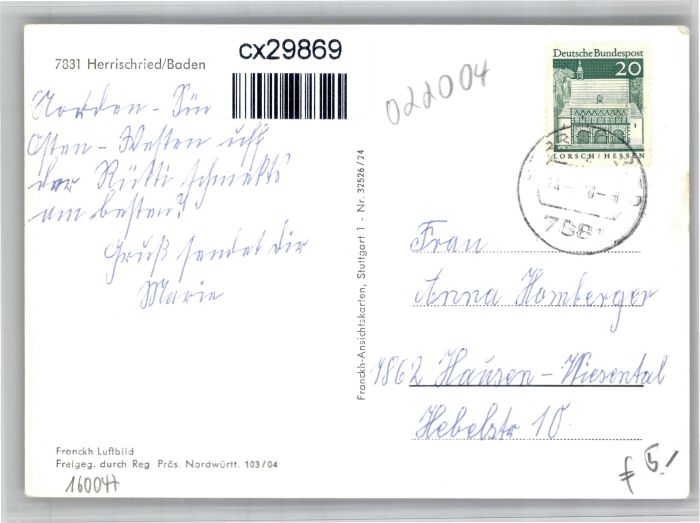 7831 Herrischried/Baden
cx29869
022004
Deutsche Bundespost
20
LORSCH/HESSEN
Norden - Sü
Osten - Westen uff
der Rütti schmekts
am besten!
Gruß sendet dir
Marie
Franckh-Ansichtskarten, Stuttgart 1 · Nr. 32526/24
Frau
Anna Homberger
7862 Hausen-Wiesental
Hebelstr 10.
Franckh Luftbild
Freigeg. durch Reg Präs. Nordwürtt. 103/04